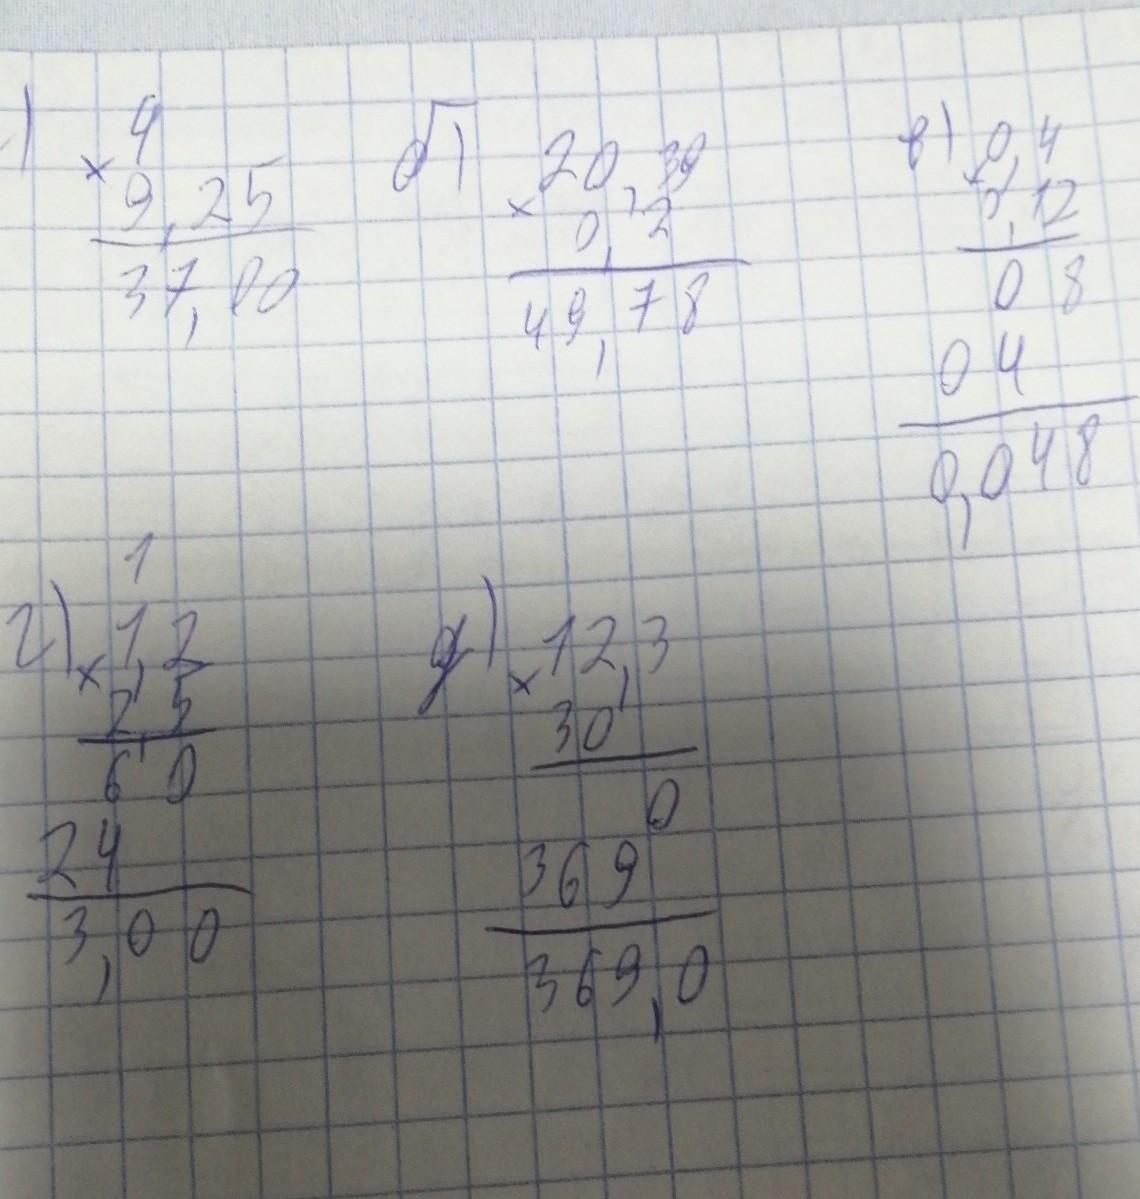 ) 4
× 9,25
37,00
б) 20,39
× 0,2
49,78
в) 0,4
× 0,12
0 8
0 4
0,048
1
г) 1,2
× 2,5
6 0
24
3,00
д) 12,3
× 30
0
369
369,0